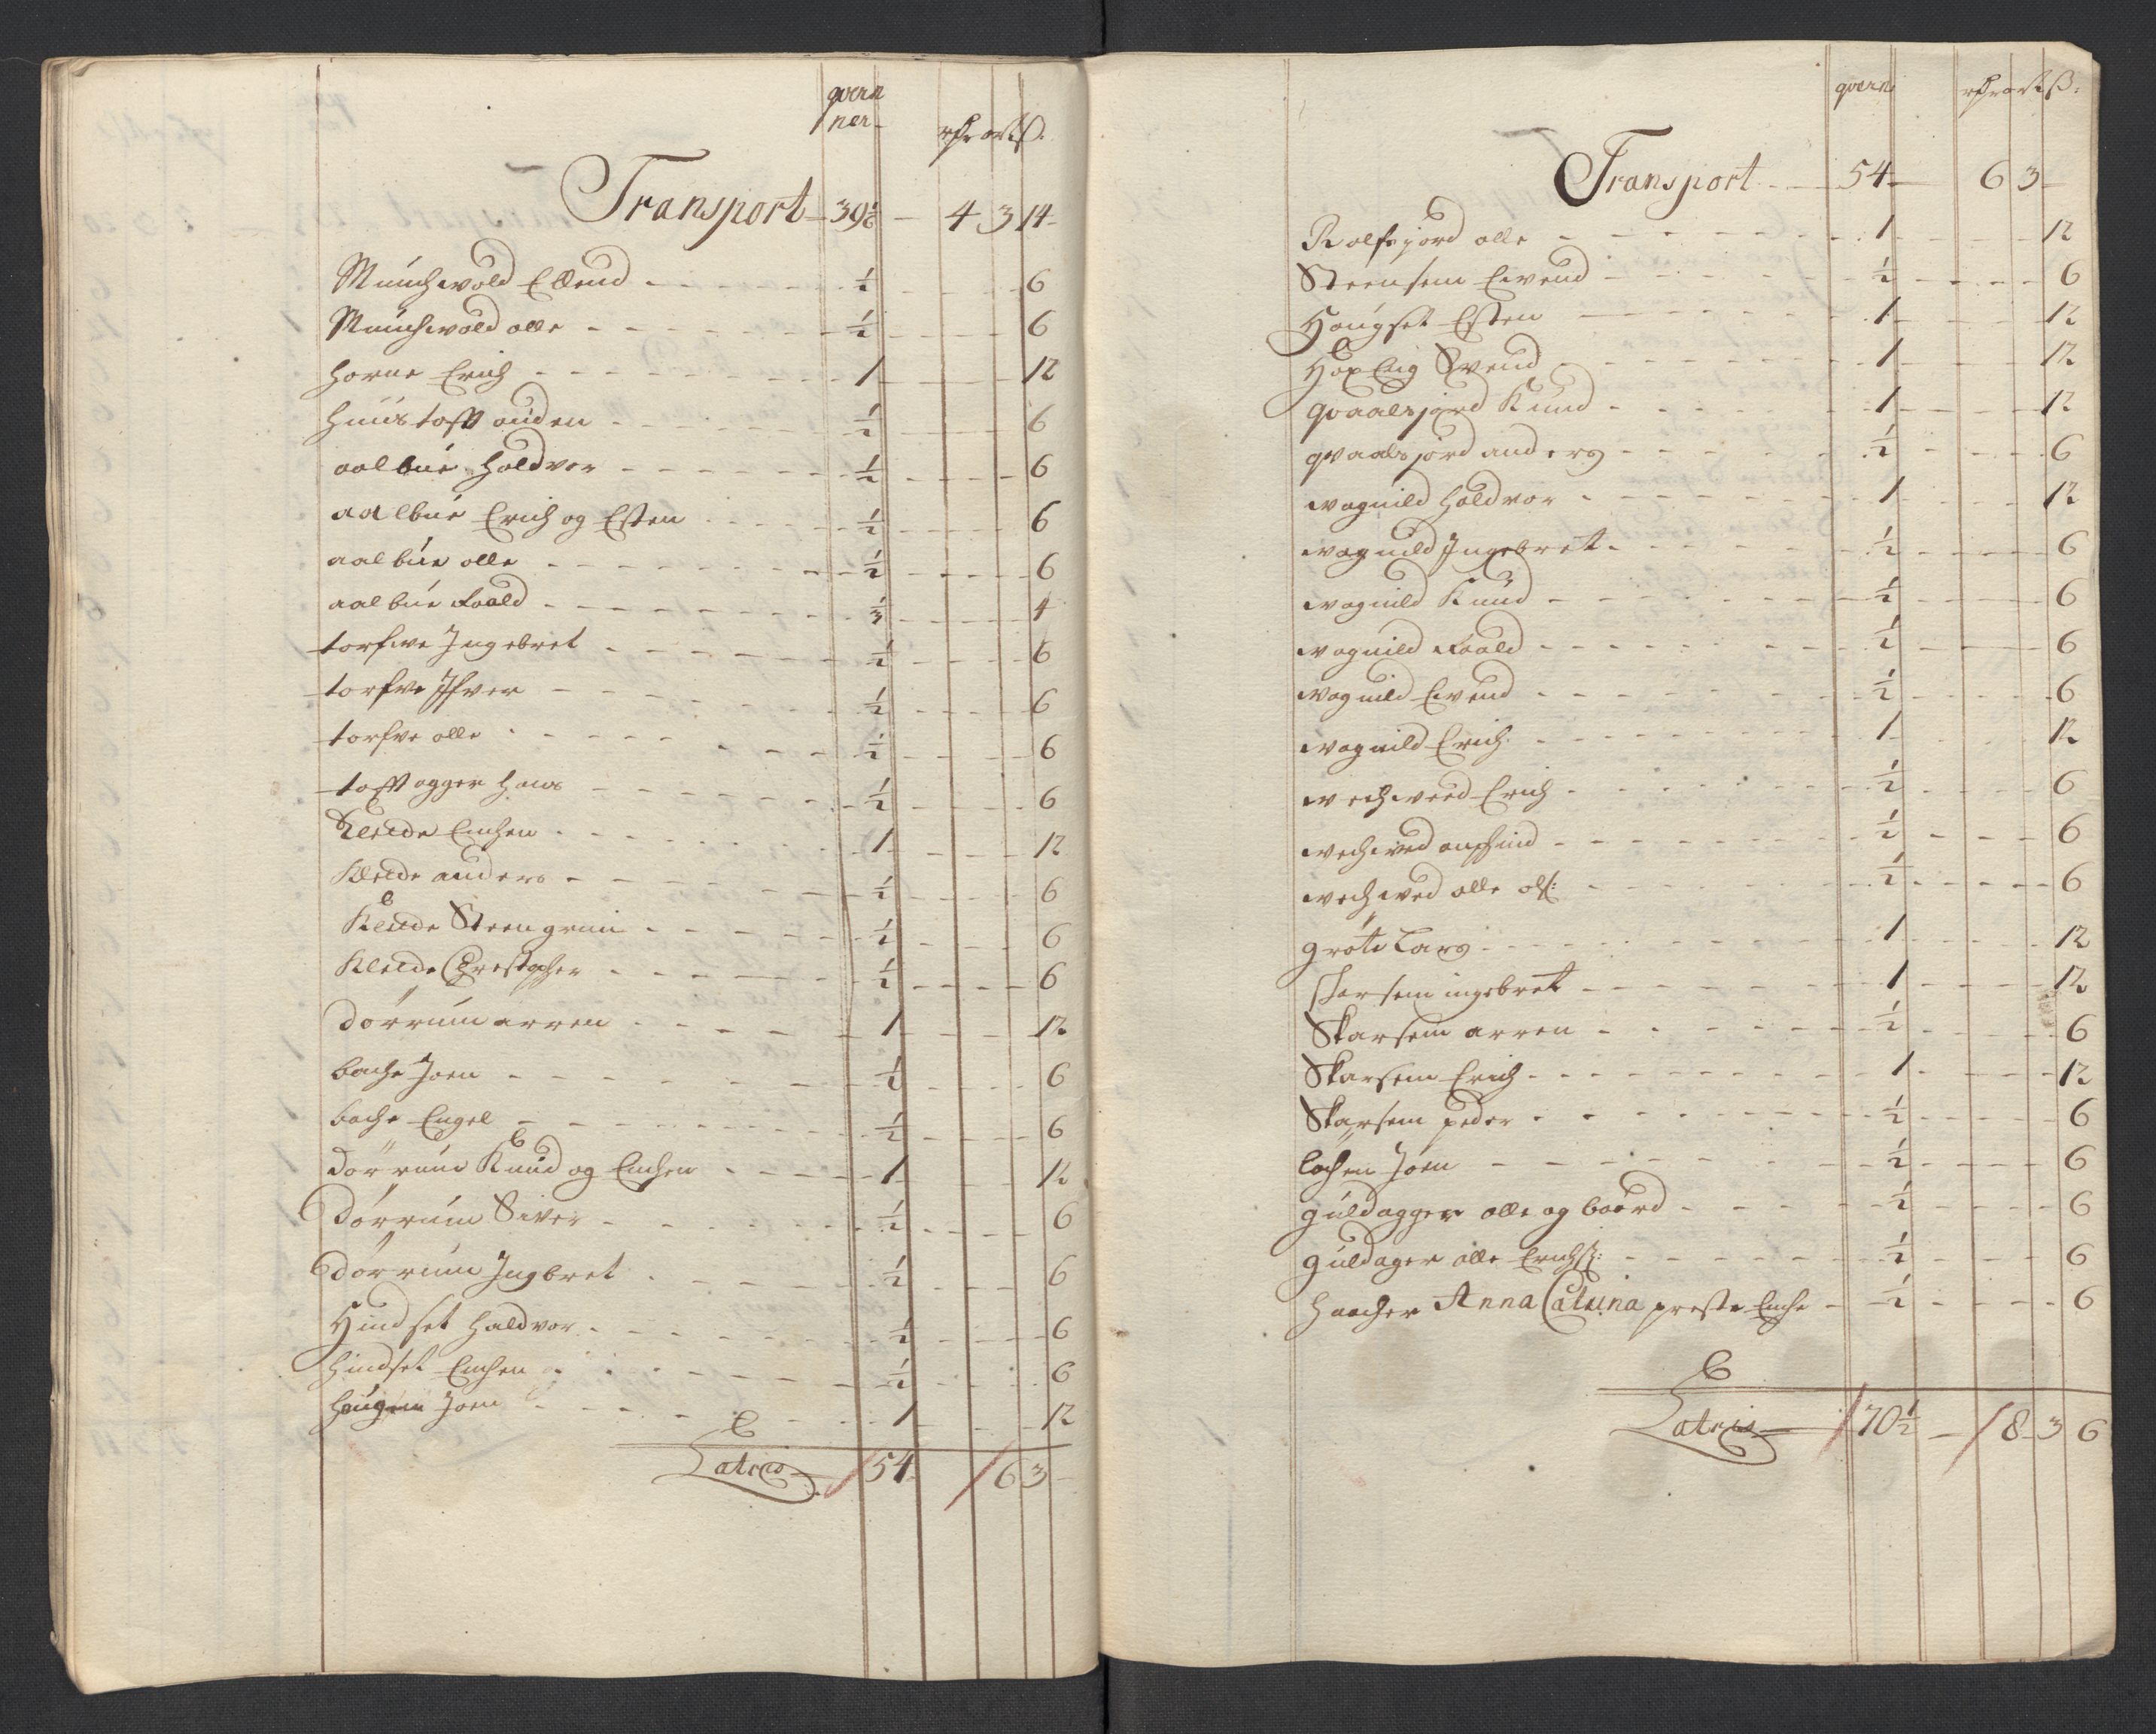 qvern
ner
rdr ort ß.
Transport 39 1/6 4 3 14
Munchwold Ellend 1/2 6
Munchwold olle 1/2 6
horne Erich 1 12
huustofft auden 1/2 6
aalbue Haldvor 1/2 6
aalbue Erich og Esten 1/2 6
aalbue olle 1/2 6
aalbue Roald 1/3 4
torfve Ingebret 1/2 6
torfve Ifver 1/2 6
torfve olle 1/2 6
tofftagger hans 1/2 6
Klevde Enchen 1 12
Klevde anders 1/2 6
Klevde Steengrim 1/2 6
Klevde Christopher 1/2 6
Dørrum arren 1 12
bache Joen 1/2 6
bache Engel 1/2 6
Dørrum Knud og Enchen 1 12
Dørrum Siver 1/2 6
Dørrum Ingbret 1/2 6
Hindset Haldvor 1/2 6
hindset Enchen 1/2 6
haugen Joen 1 12
Lateris 54 6 3
qvern rdr ort ß:
Transport 54 6 3
Rolfsjord olle 1 12
Steensem Evend 1/2 6
Haugset Esten 1 12
Svend 1 12
qvaalsjord Knud 1 12
qvaalsjord anders 1/2 6
wognild Haldvor 1 12
wognild Ingebret 1/2 6
wognild Knud 1/2 6
wognild Roald 1/2 6
wognild Evend 1/2 6
wognild Erich 1 12
wechwed Erich 1/2 6
wechwed anffind 1/2 6
wechwed olle ols: 1/2 6
grøte Lars 1 12
skarsem ingebret 1 12
Skarsem arren 1/2 6
Skarsem Erich 1 12
Skarsem peder 1/2 6
løchen Joen 1/2 6
guldagger olle og baard 1/2 6
guldager olle Erichß: 1/2 6
haacher Anna Catrina preste Enche 1/2 6
Lateris 70 1/2 8 3 6